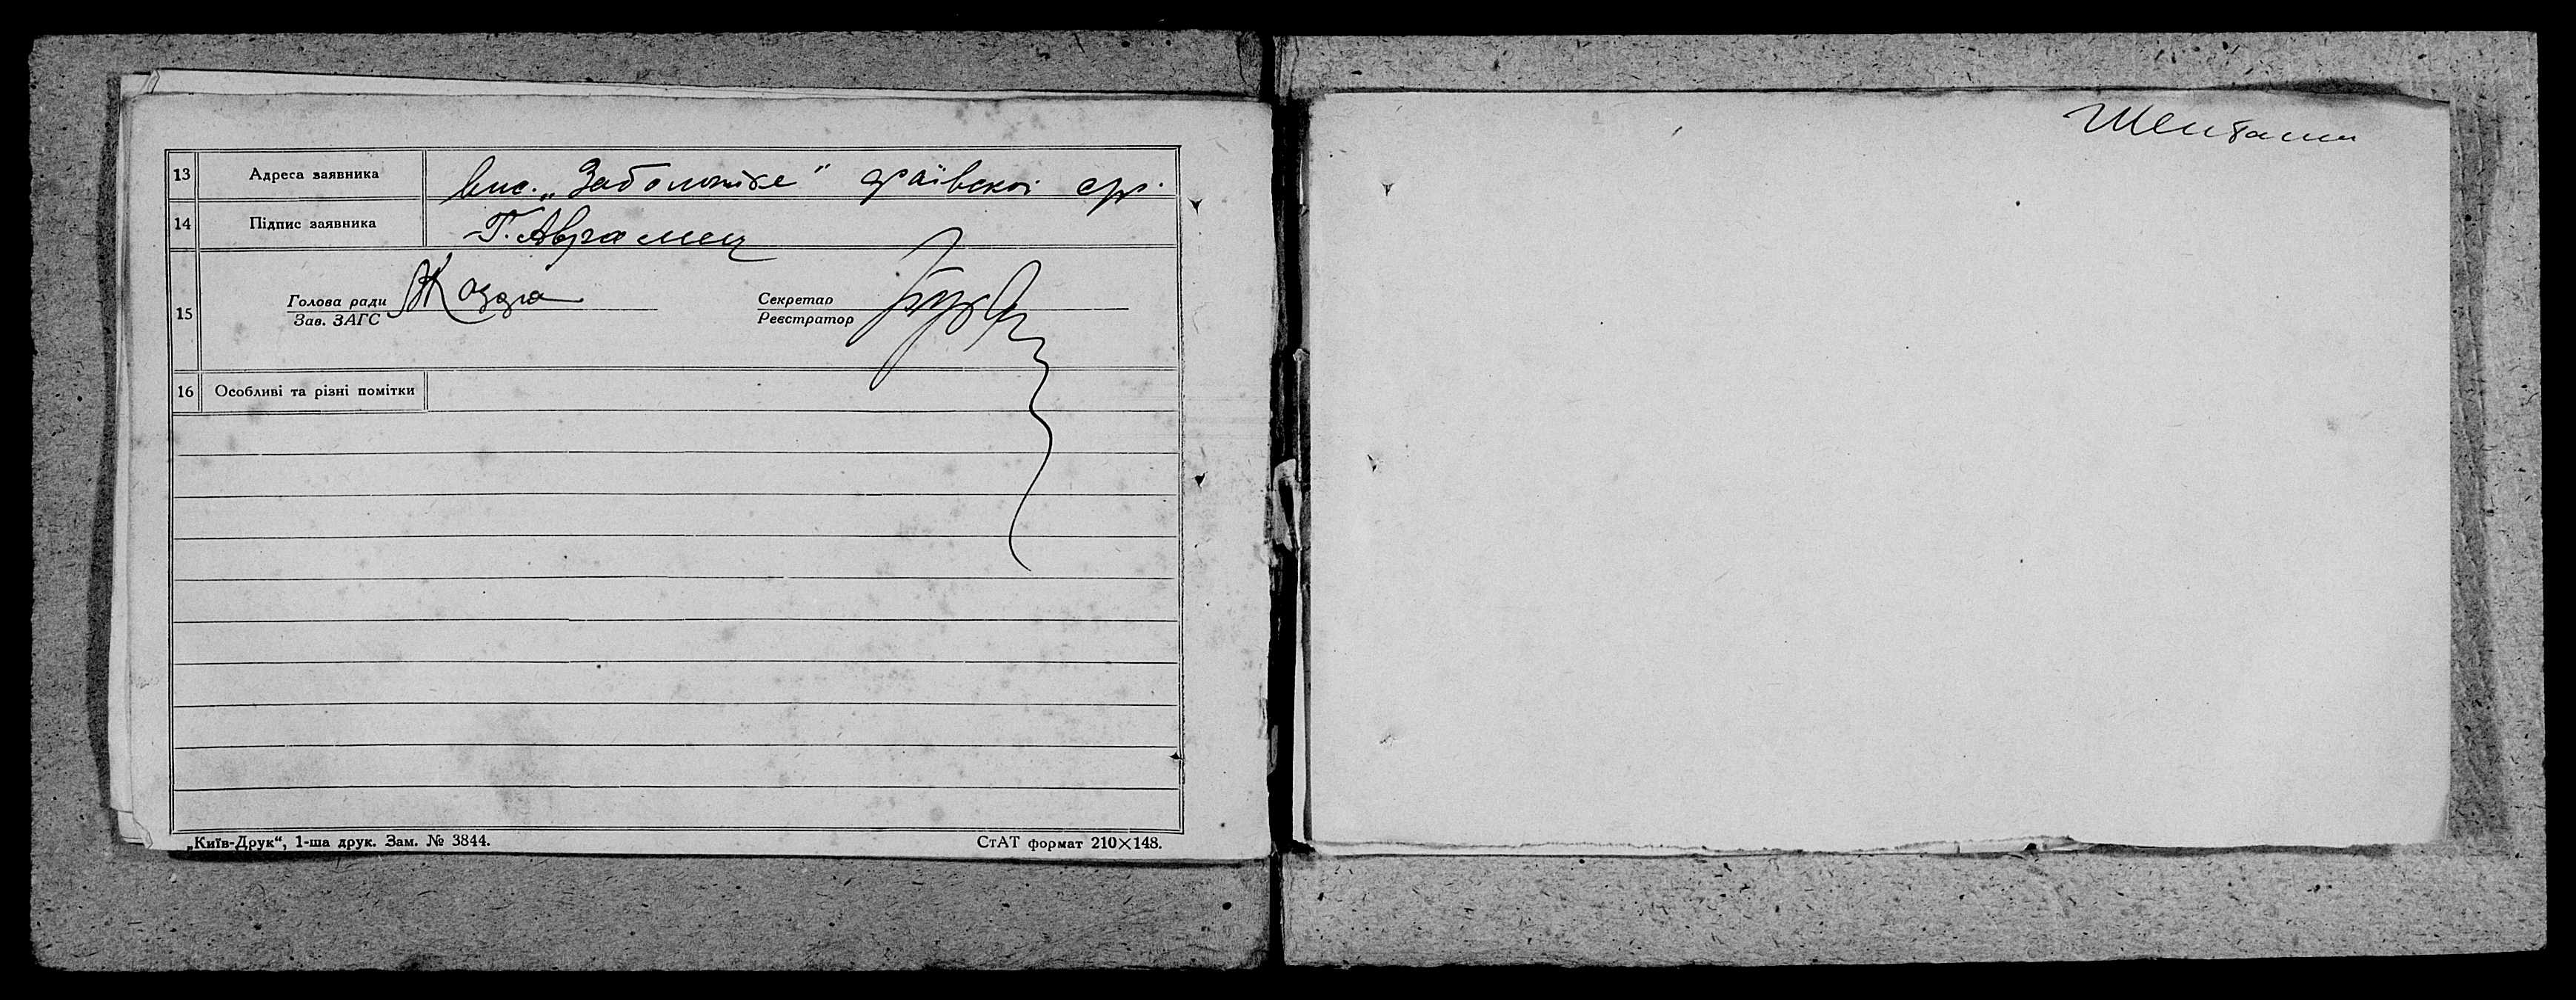 13 Адреса заявника вис. „Заболотте"
14 Підпис заявника Г. Аврамец
15 Голова ради
Зав. ЗАГС
Секретар
Реєстратор
16 Особливі та різні помітки
„Київ-Друк“, 1-ша друк. Зам. № 3844.
СтАТ формат 210×148.